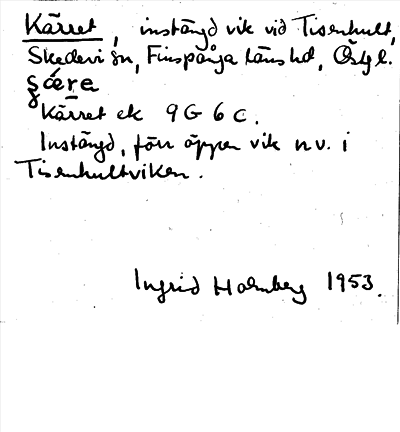 Kärret, instängd vik vid Tisenhult,
Skedevi sn, Finspånga läns hd, Östg l.
Kärret ek 9G6c.
Instängd, förr öppen vik n v. i
Tisenhultviken.
Ingrid Holmberg 1953.